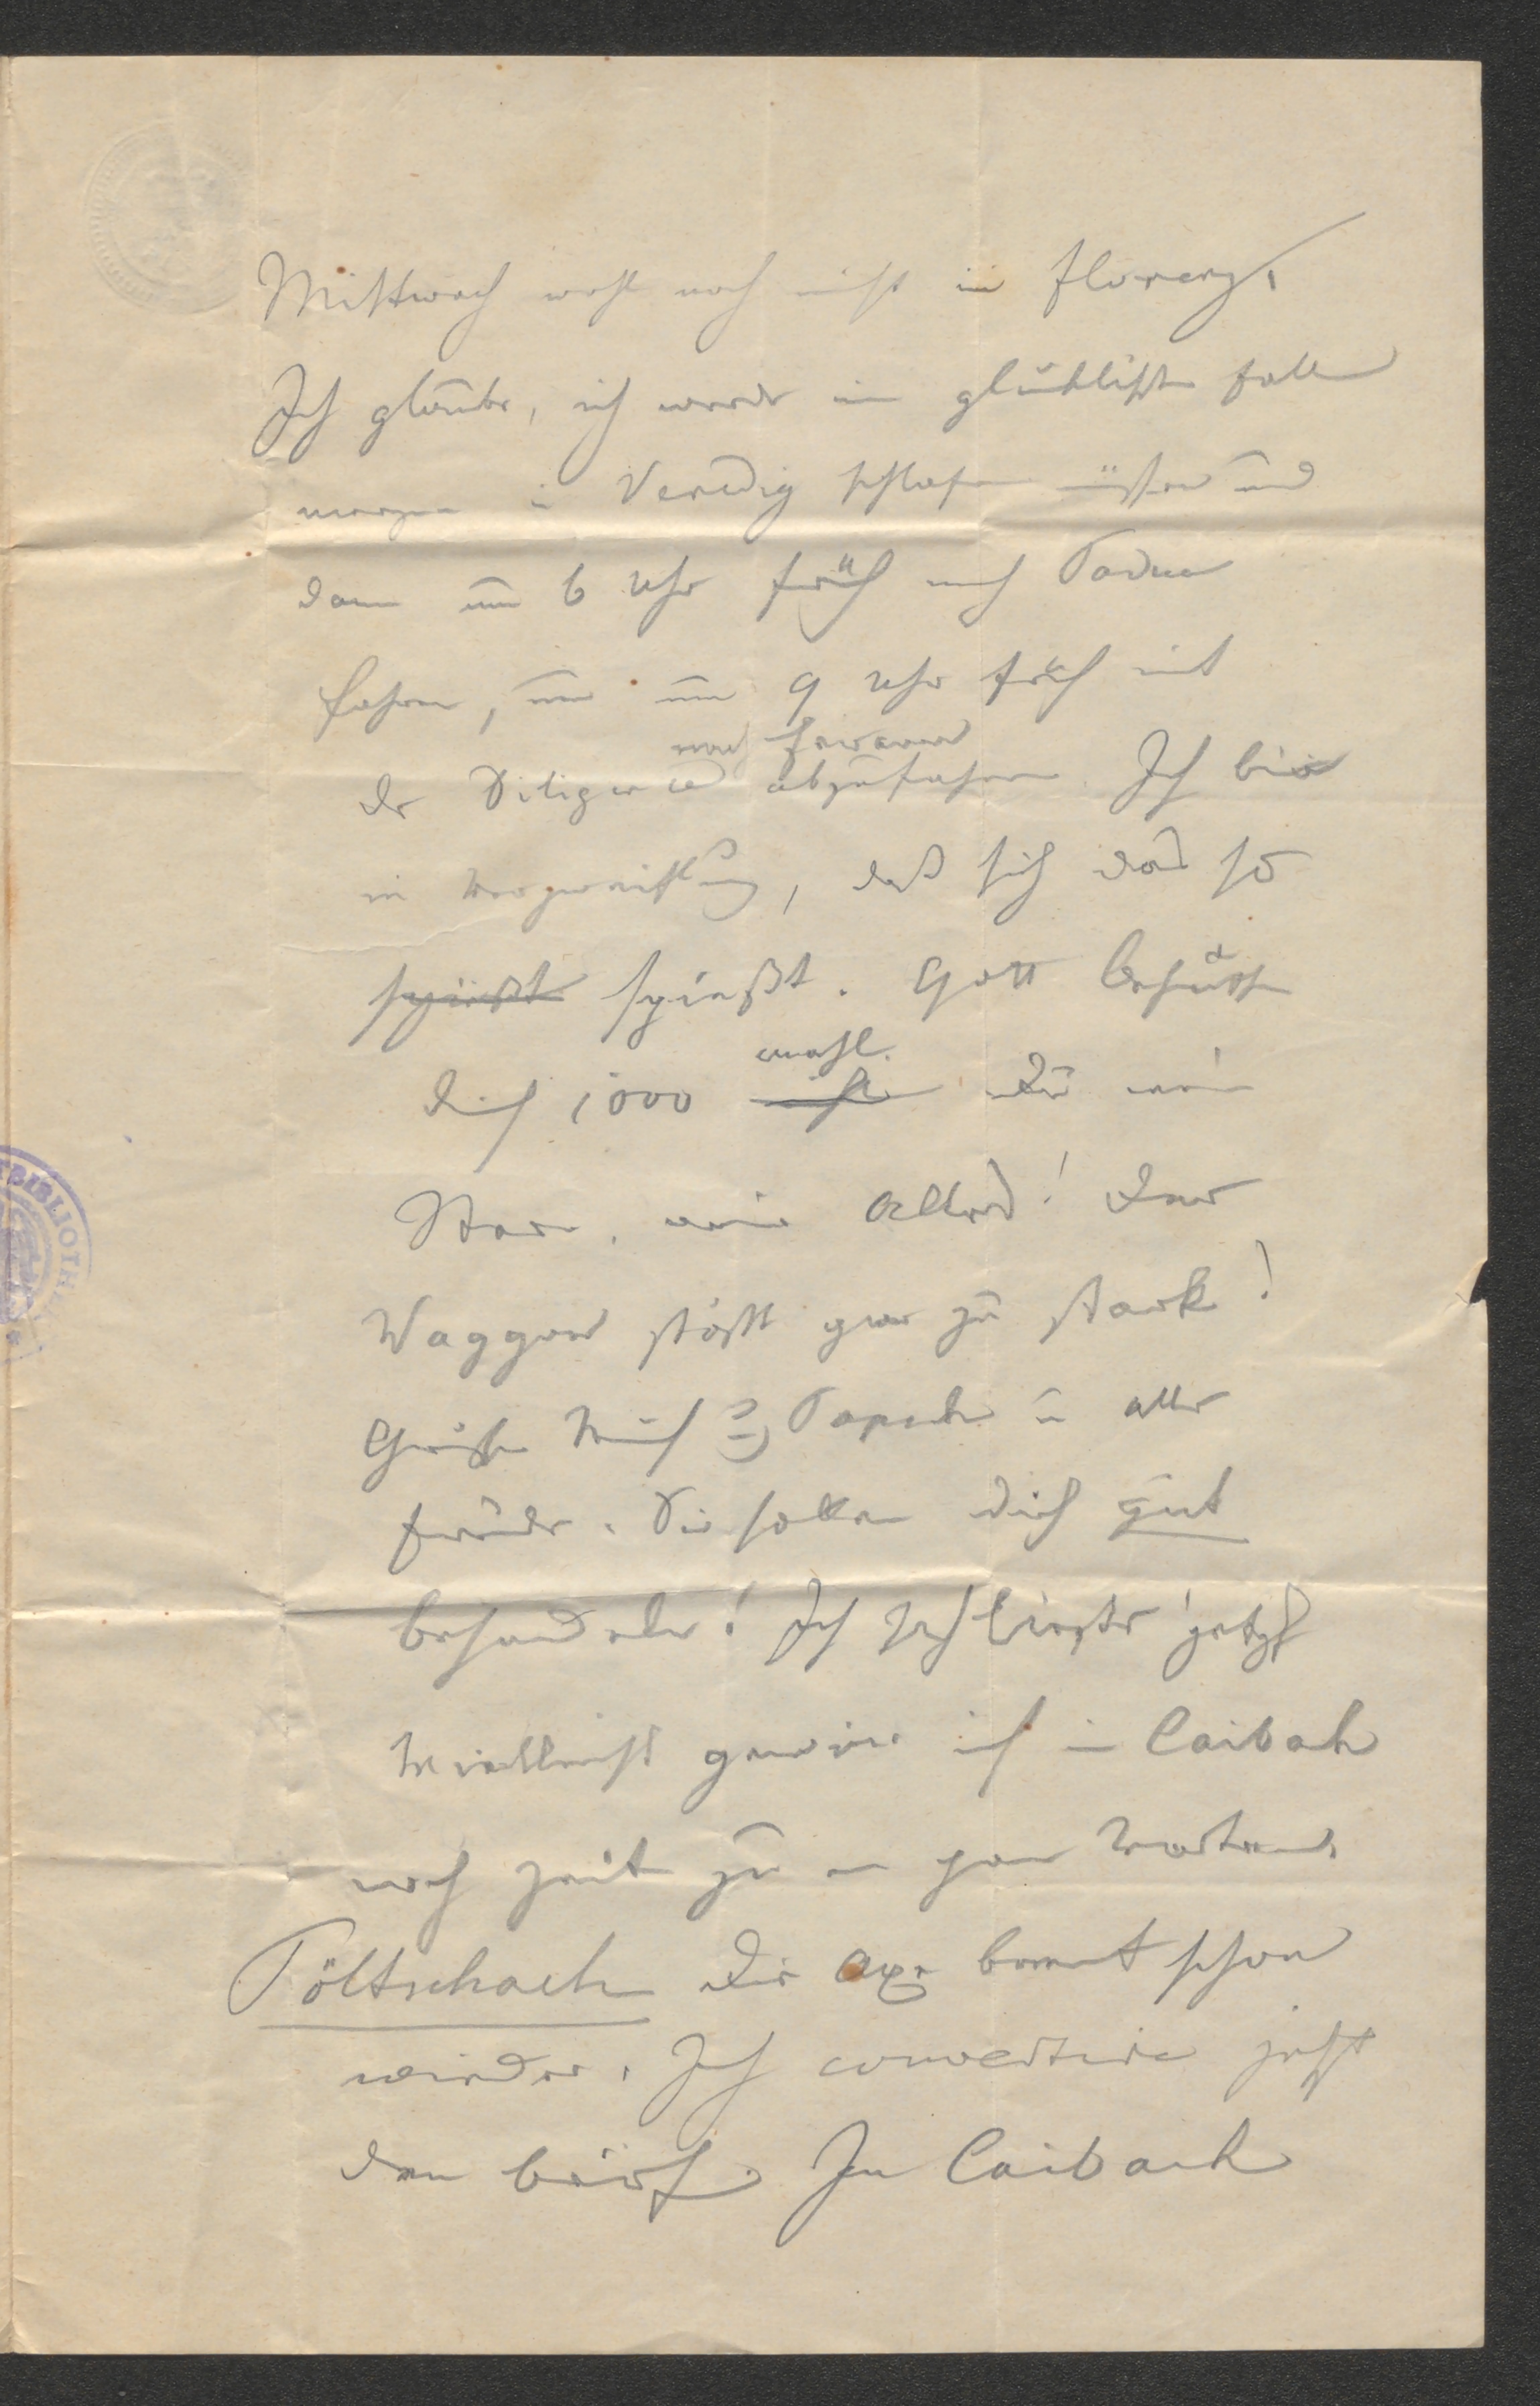 Mittwoch wohl noch nicht in Florenz.
Ich glaube, ich werde im glücklichsten Falle
morgen in Venedig schlafen müssen und
dann um 6 Uhr früh nach Padua
fahren, um um 9 Uhr früh mit
der Diligence nach Ferrara abzufahren. Ich bin
in Verzweiflung, daß sich das so
spießt spießt. Gott behüte
Dich 1000 mahl. Du mein
Stern, mein Alles! Der
Waggon stößt gar zu stark!
Grüße mir Papach u alle
Freunde. Sie sollen Dich gut
behandeln! Ich schließe jetzt
Vielleicht gewinne ich in Laibach
noch Zeit zu ein paar Worten.
Pöltschach Die Axe brennt schon
wieder. Ich couvertire jetzt
den Brief. In Laibach
BIBLIOTH